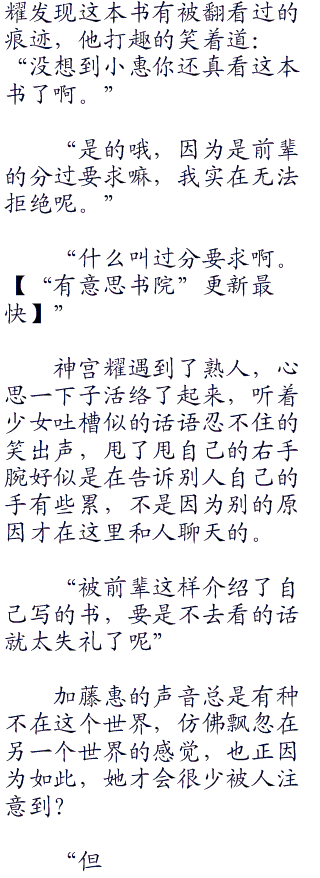 耀发现这本书有被翻看过的
痕迹，他打趣的笑着道：
“没想到小惠你还真看这本
书了啊。”
“是的哦，因为是前辈
的分过要求嘛，我实在无法
拒绝呢。”
“什么叫过分要求啊。
【“有意思书院”更新最
快】”
神宫耀遇到了熟人，心
思一下子活络了起来，听着
少女吐槽似的话语忍不住的
笑出声，甩了甩自己的右手
腕好似是在告诉别人自己的
手有些累，不是因为别的原
因才在这里和人聊天的。
“被前辈这样介绍了自
己写的书，要是不去看的话
就太失礼了呢”
加藤惠的声音总是有种
不在这个世界，仿佛飘忽在
另一个世界的感觉，也正因
为如此，她才会很少被人注
意到？
“但